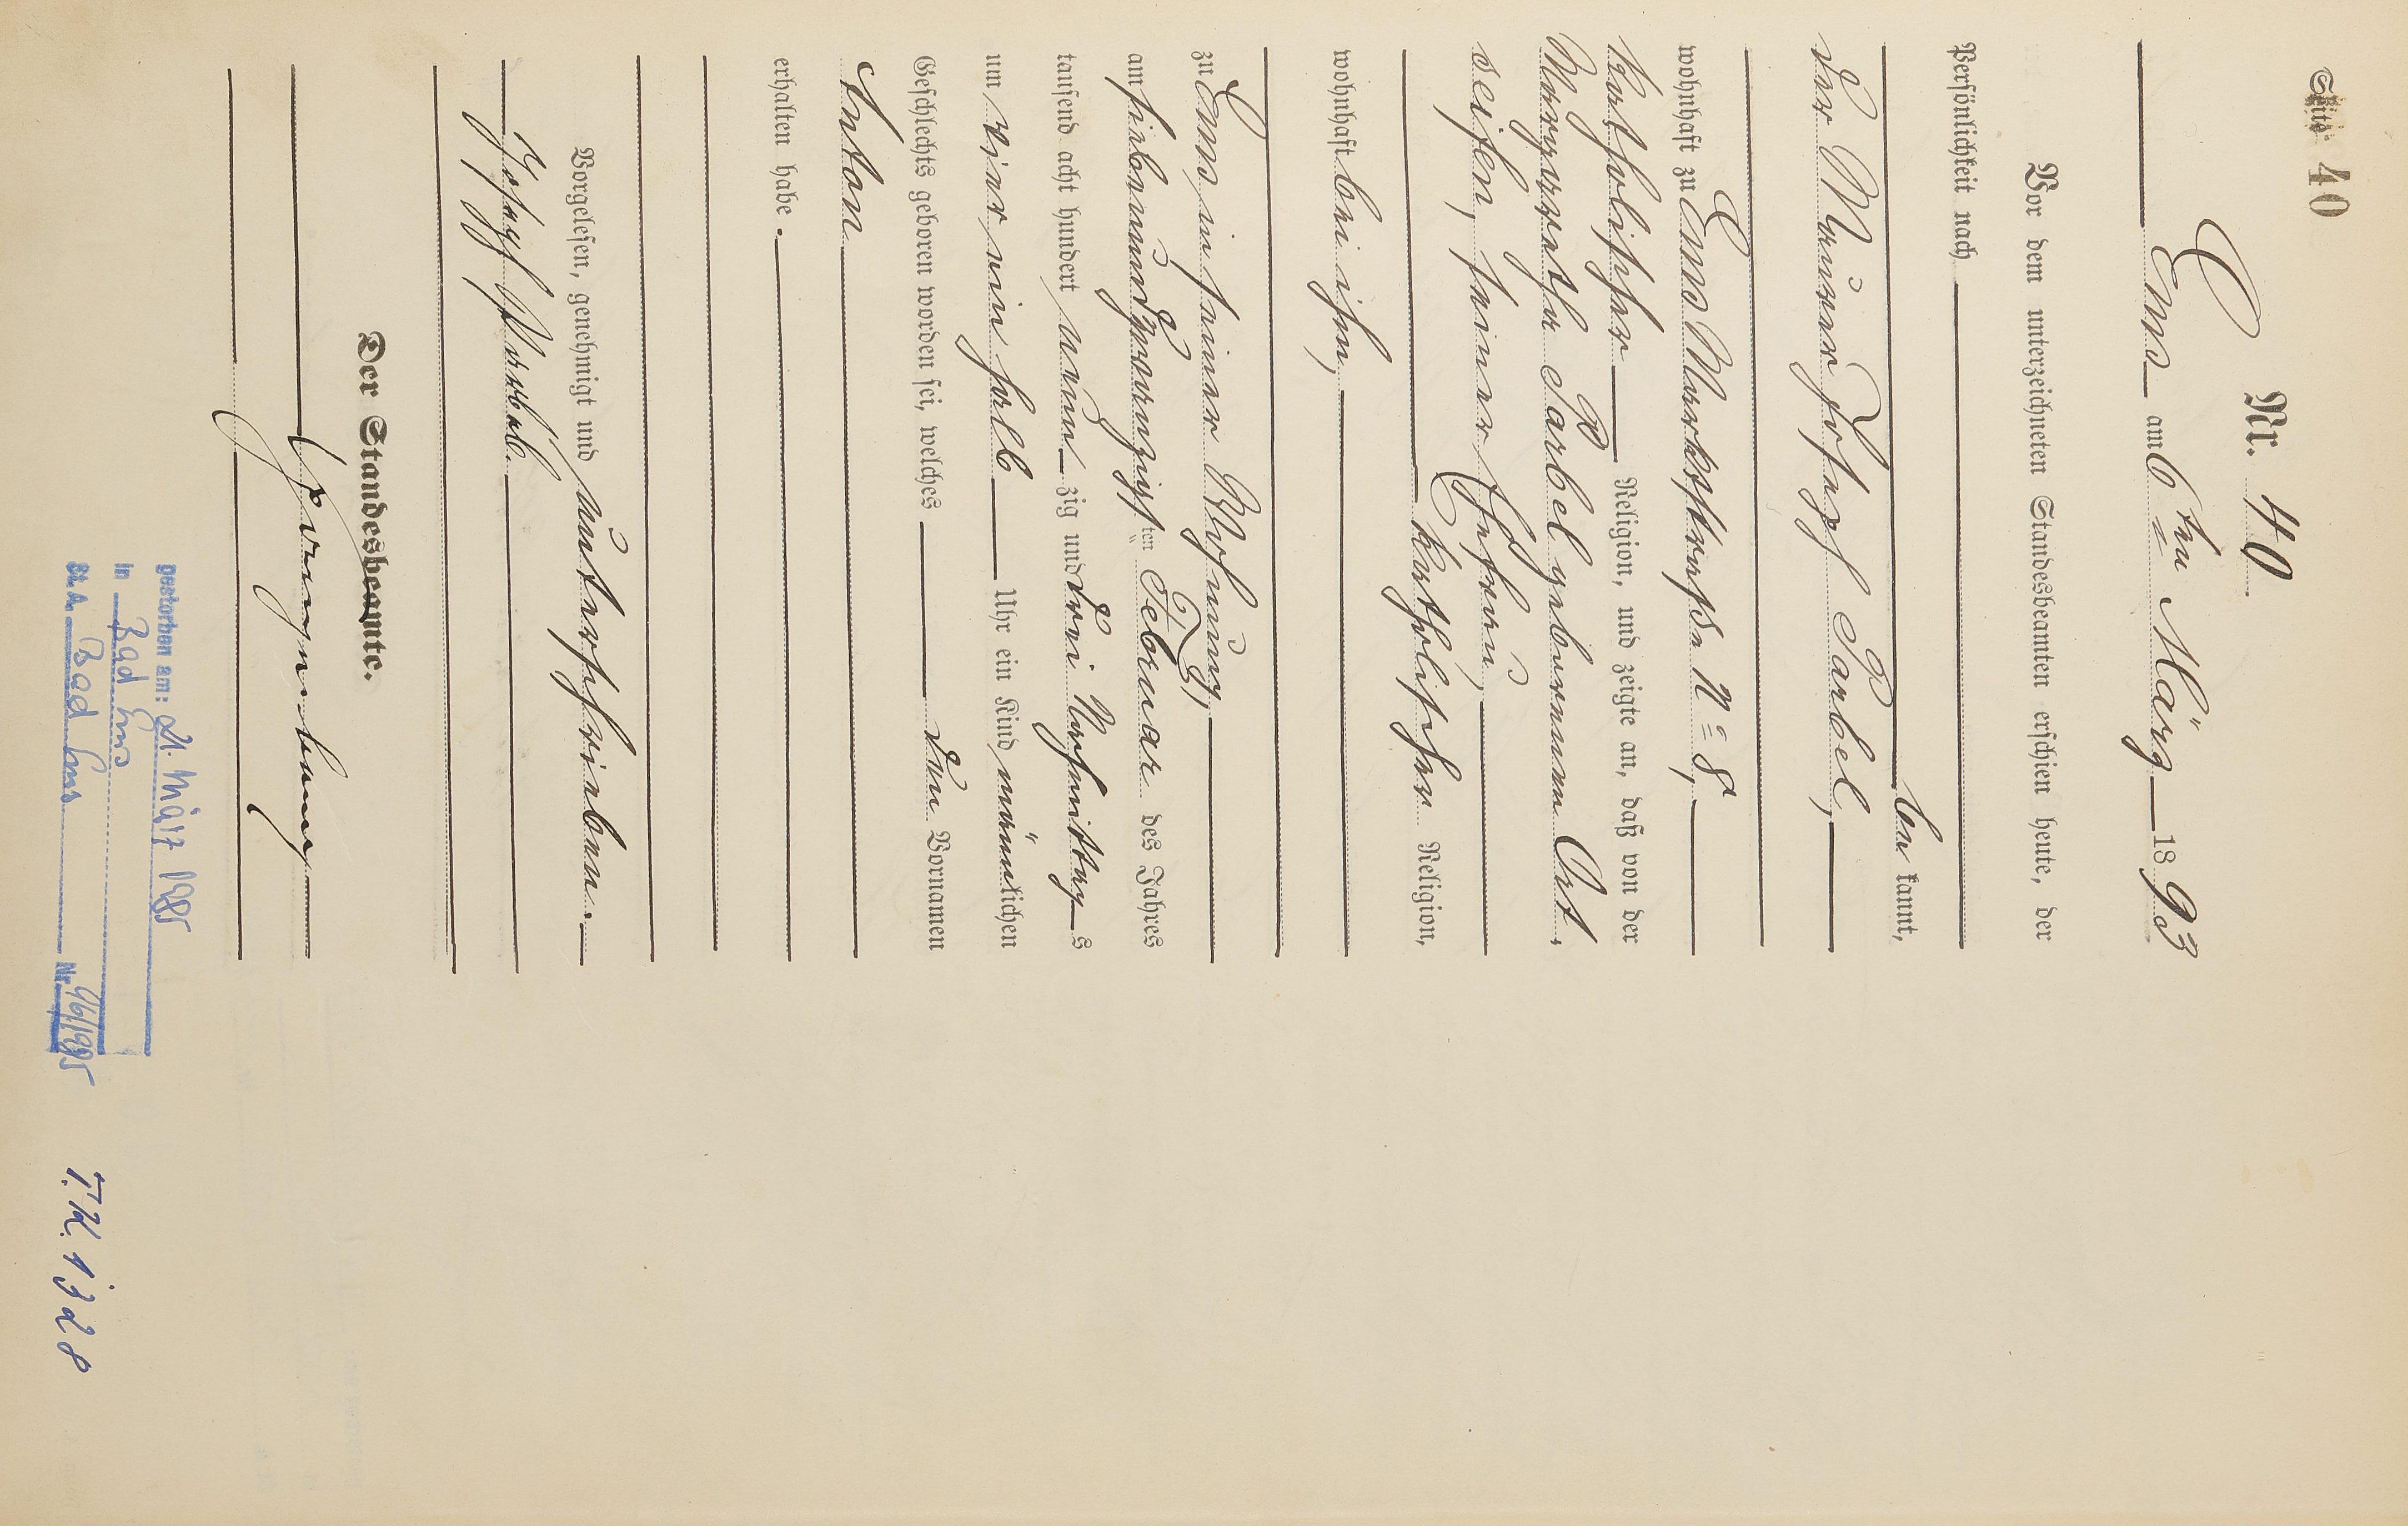 Seite 40
Nr. 40
Ems am 6ten März 1893
Vor dem unterzeichneten Standesbeamten erschien heute, der
Persönlichkeit nach
be kannt,
der Maurer Josef Sarbel,
wohnhaft zu Ems Marktstraße No 8,
katholischer Religion, und zeigte an, daß von der
Margarethe Sarbel geborenen Ort-
seifen, seiner Ehefrau,
katholischer Religion,
wohnhaft bei ihm,
zu Ems in seiner Wohnung,
am siebenundzwanzigsten Februar des Jahres
tausend acht hundert neun zig und drei Nachmittags
um vier ein halb Uhr ein Kind männlichen
Geschlechts geboren worden sei, welches den Vornamen
Anton
erhalten habe.
Vorgelesen, genehmigt und unterschrieben.
Joseph Sarbel
Der Standesbeamte.
gestorben am: 21. März 1985
in Bad Ems
St. A. Bad Ems Nr. 46/1985
T.N. 1328